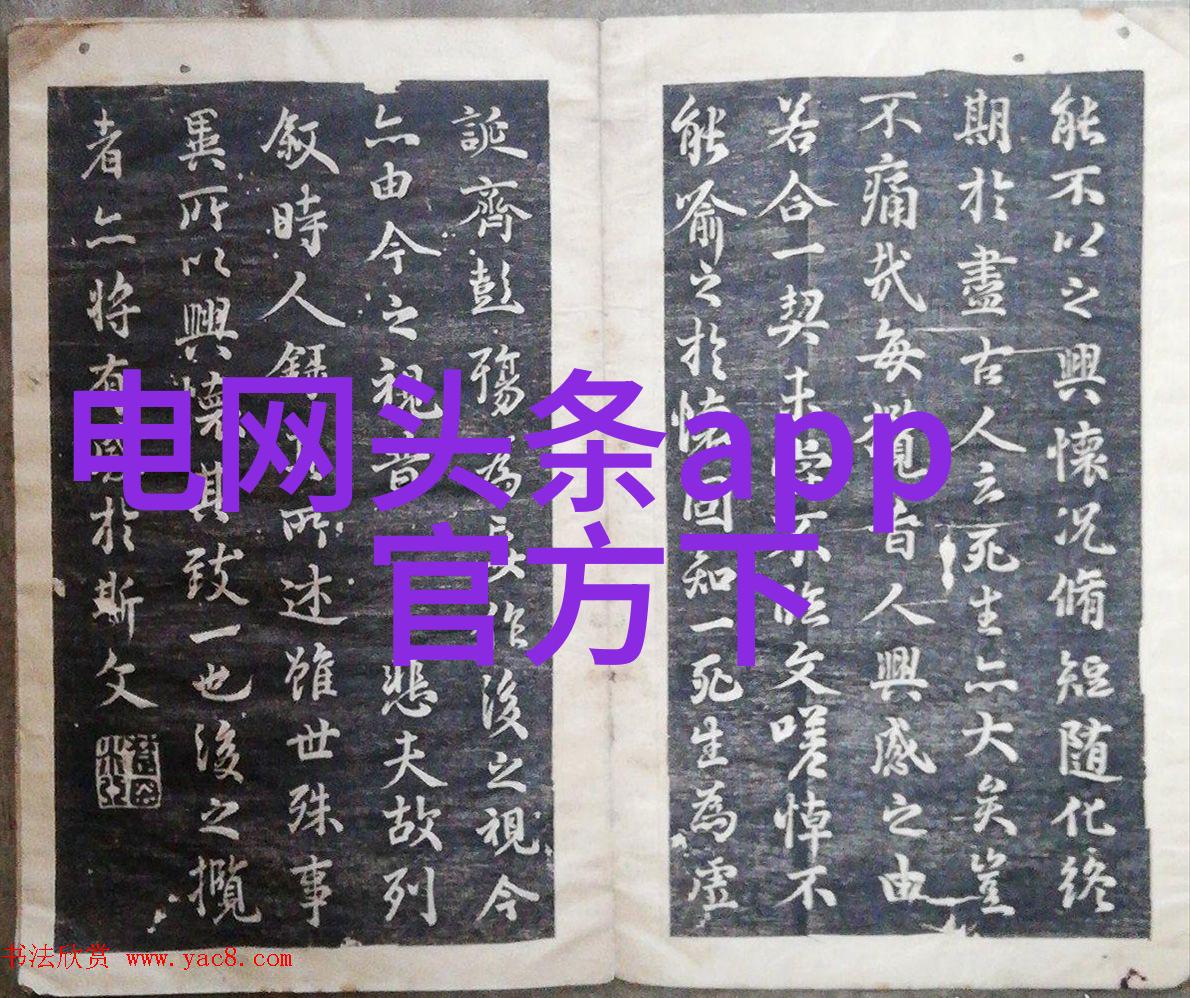 能不以之興懷況脩短随化終
期於盡古人云死生亦大矣豈
不痛哉每攬昔人興感之由
若合一契未嘗不臨文嗟悼不
能喻之於懷固知一死生為虛
誕齊彭殤為妄作後之視今
亦由今之視昔悲夫故列
敘時人錄其所述雖世殊事
異所以興懷其致一也後之攬
者亦将有感於斯文
电网头条app
官方下
书法欣赏 www.yac8.com